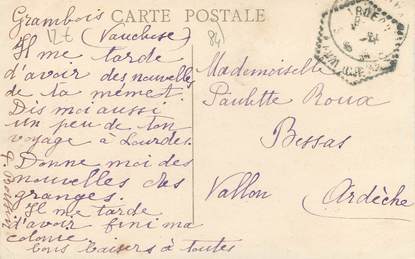 CARTE POSTALE
Grambois
12€ (Vaucluse)
84
Il me tarde
d'avoir des nouvelles
de ta mémét.
Dis moi aussi
un peu de ton
voyage à Lourdes.
Donne moi des
nouvelles des
granges.
Il me tarde
d'avoir fini ma
colonie.
bons baisers à toutes
Mademoiselle
Paulette Roux
Bessas
Vallon Ardèche